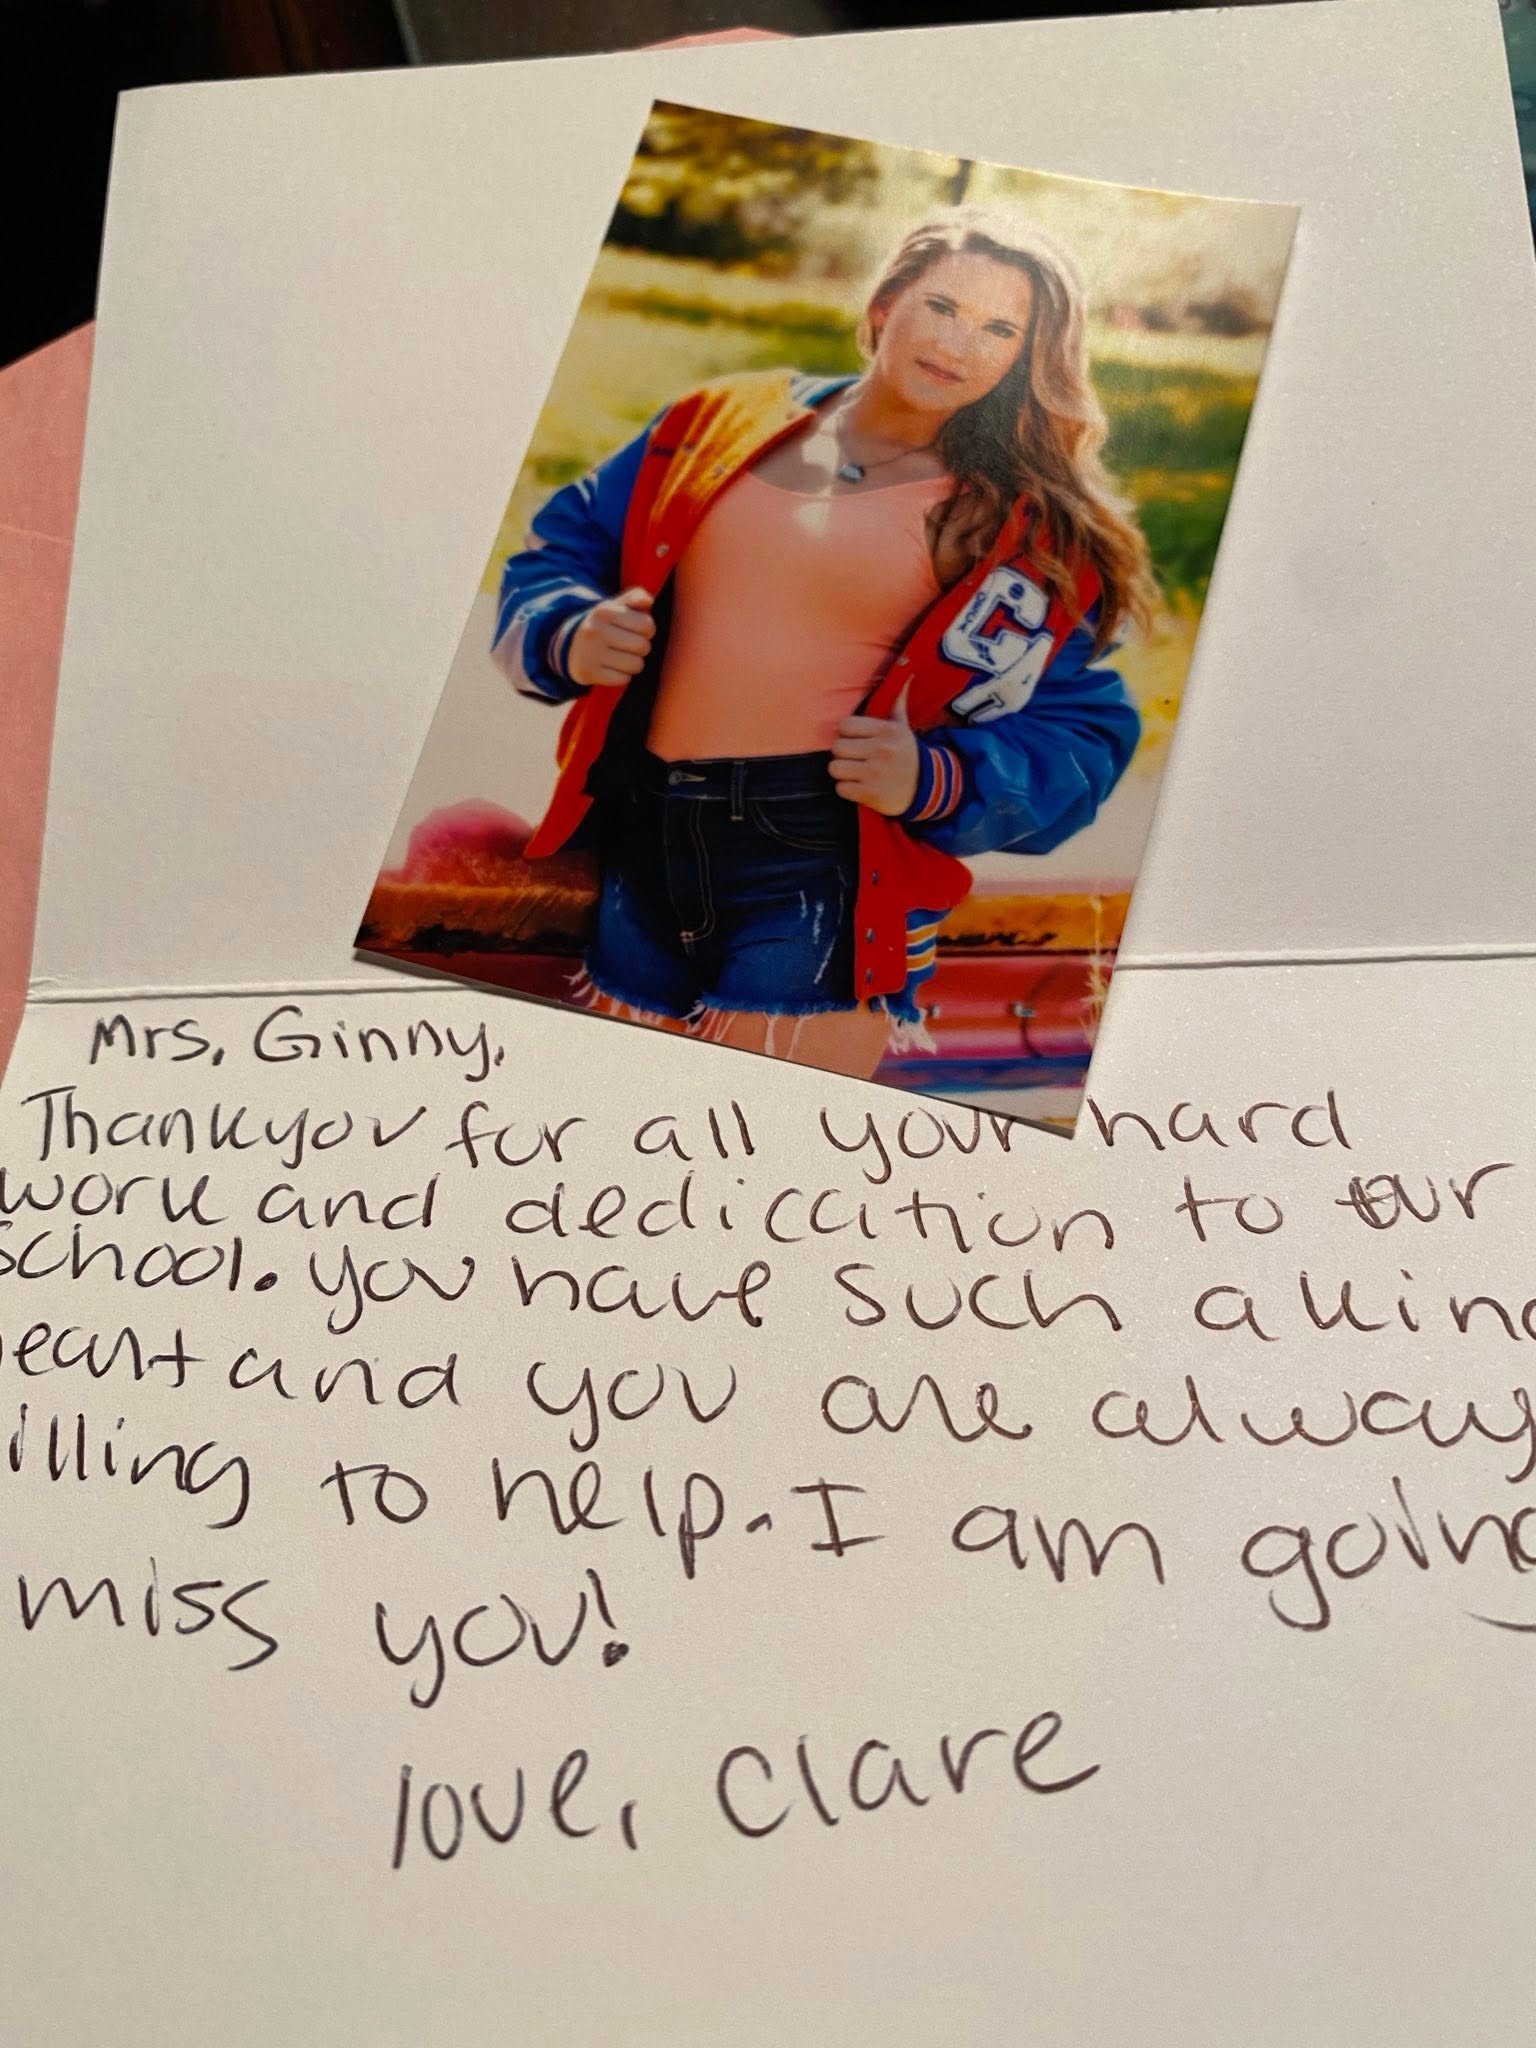 Mrs. Ginny,
Thankyou for all your hard
work and dedication to our
school. you have such a kind
heart and you are always
willing to help. I am going
miss you!
love, Clare